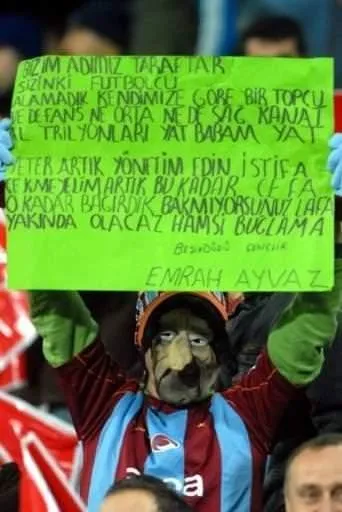 BIZIM ADIMIZ TARAFTAR
SIZINKI FUTBOLCU
ALAMADIK KENDIMIZE GÖRE BIR TOPCU
NE DEFANS NE ORTA NE DE SAĞ KANAT
AL TRILYONLARI YAT BABAM YAT
YETER ARTIK YÖNETIM EDIN ISTIFA
ÇEKMEYELIM ARTIK BU KADAR CEFA
O KADAR BAĞIRDIK BAKMIYORSUNUZ LAFA
YAKINDA OLACAZ HAMSI BUĞLAMA
BEŞIKDÜZÜ GENÇLIK
EMRAH AYVAZ